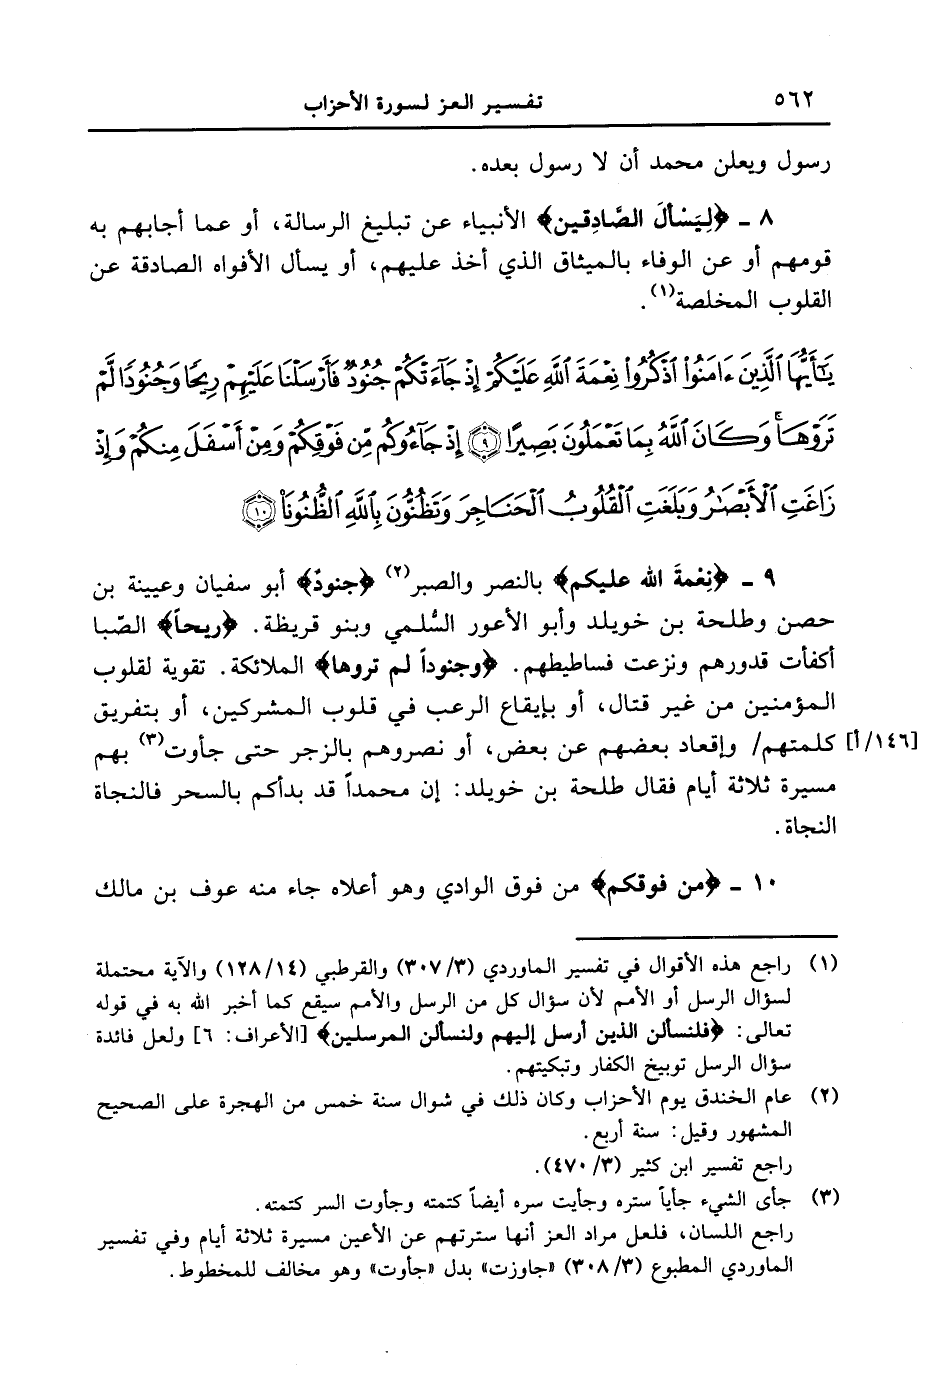 ٥٦٢
تفسير العز لسورة الأحزاب
رسول ويعلن محمد أن لا رسول بعده.
٨ ـ ﴿لِيَسْألَ الصَّادِقين﴾ الأنبياء عن تبليغ الرسالة، أو عما أجابهم به
قومهم أو عن الوفاء بالميثاق الذي أخذ عليهم، أو يسأل الأفواه الصادقة عن
القلوب المخلصة(١).
يَٰٓأَيُّهَا ٱلَّذِينَ ءَامَنُوا۟ ٱذْكُرُوا۟ نِعْمَةَ ٱللَّهِ عَلَيْكُمْ إِذْ جَآءَتْكُمْ جُنُودٌ فَأَرْسَلْنَا عَلَيْهِمْ رِيحًا وَجُنُودًا لَّمْ
تَرَوْهَا ۚ وَكَانَ ٱللَّهُ بِمَا تَعْمَلُونَ بَصِيرًا ۝٩ إِذْ جَآءُوكُم مِّن فَوْقِكُمْ وَمِنْ أَسْفَلَ مِنكُمْ وَإِذْ
زَاغَتِ ٱلْأَبْصَٰرُ وَبَلَغَتِ ٱلْقُلُوبُ ٱلْحَنَاجِرَ وَتَظُنُّونَ بِٱللَّهِ ٱلظُّنُونَا۠ ۝١٠
٩ ـ ﴿نِعْمةَ الله عليكم﴾ بالنصر والصبر(٢) ﴿جنودٌ﴾ أبو سفيان وعيينة بن
حصن وطلحة بن خويلد وأبو الأعور السُّلمي وبنو قريظة. ﴿ريحاً﴾ الصّبا
أكفأت قدورهم ونزعت فساطيطهم. ﴿وجنوداً لم تروها﴾ الملائكة. تقوية لقلوب
المؤمنين من غير قتال، أو بإيقاع الرعب في قلوب المشركين، أو بتفريق
[١٤٦/أ] كلمتهم/ وإقعاد بعضهم عن بعض، أو نصروهم بالزجر حتى جأوت(٣) بهم
مسيرة ثلاثة أيام فقال طلحة بن خويلد: إن محمداً قد بدأكم بالسحر فالنجاة
النجاة.
١٠ ـ ﴿من فوقكم﴾ من فوق الوادي وهو أعلاه جاء منه عوف بن مالك
(١) راجع هذه الأقوال في تفسير الماوردي (٣٠٧/٣) والقرطبي (١٢٨/١٤) والآية محتملة
لسؤال الرسل أو الأمم لأن سؤال كل من الرسل والأمم سيقع كما أخبر الله به في قوله
تعالى: ﴿فلنسألن الذين أرسل إليهم ولنسألن المرسلين﴾ [الأعراف: ٦] ولعل فائدة
سؤال الرسل توبيخ الكفار وتبكيتهم.
(٢) عام الخندق يوم الأحزاب وكان ذلك في شوال سنة خمس من الهجرة على الصحيح
المشهور وقيل: سنة أربع.
راجع تفسير ابن كثير (٤٧٠/٣).
(٣) جأى الشيء جأياً ستره وجأيت سره أيضاً كتمته وجأوت السر كتمته.
راجع اللسان، فلعل مراد العز أنها سترتهم عن الأعين مسيرة ثلاثة أيام وفي تفسير
الماوردي المطبوع (٣٠٨/٣) «جاوزت» بدل «جأوت» وهو مخالف للمخطوط.